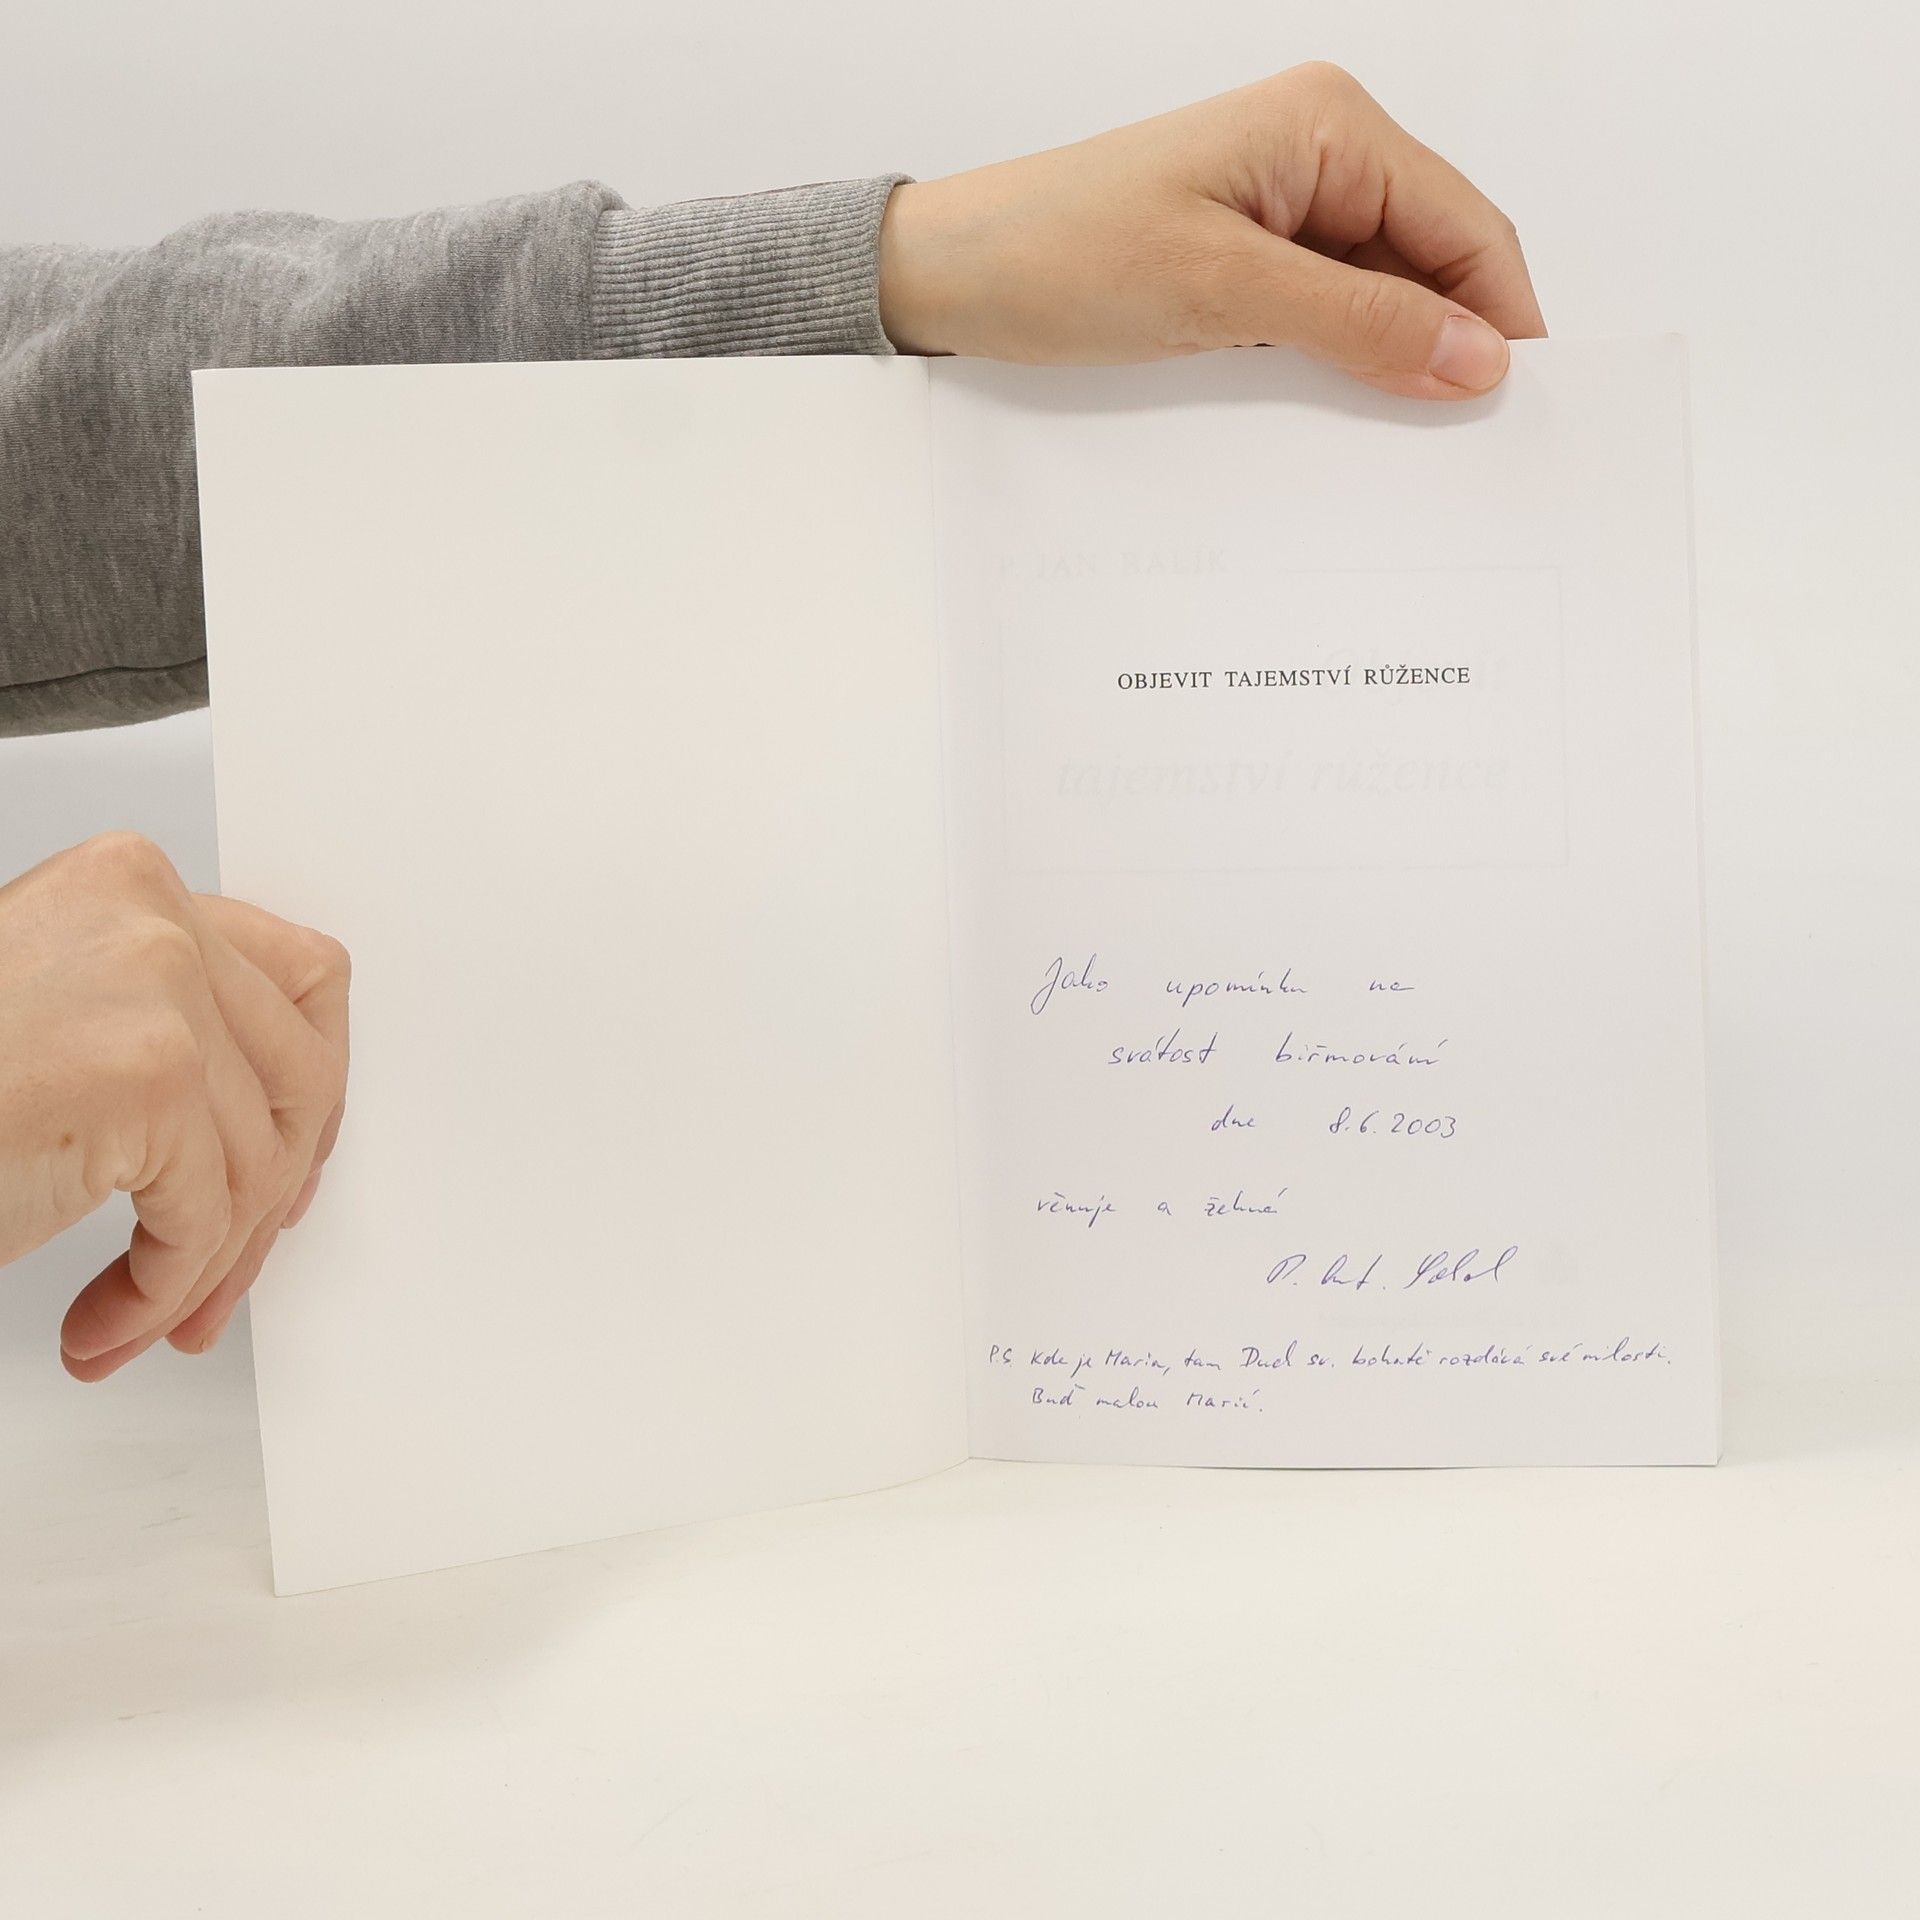 P. JAN BALÍK
OBJEVIT TAJEMSTVÍ RŮŽENCE
tajemství růžence
Jako upomínku na
svátost biřmování
dne 8.6.2003
věnuje a žehná
P. Ant.
P.S. Kde je Maria, tam Duch sv. bohatě rozdává své milosti.
Buď malou Marií.